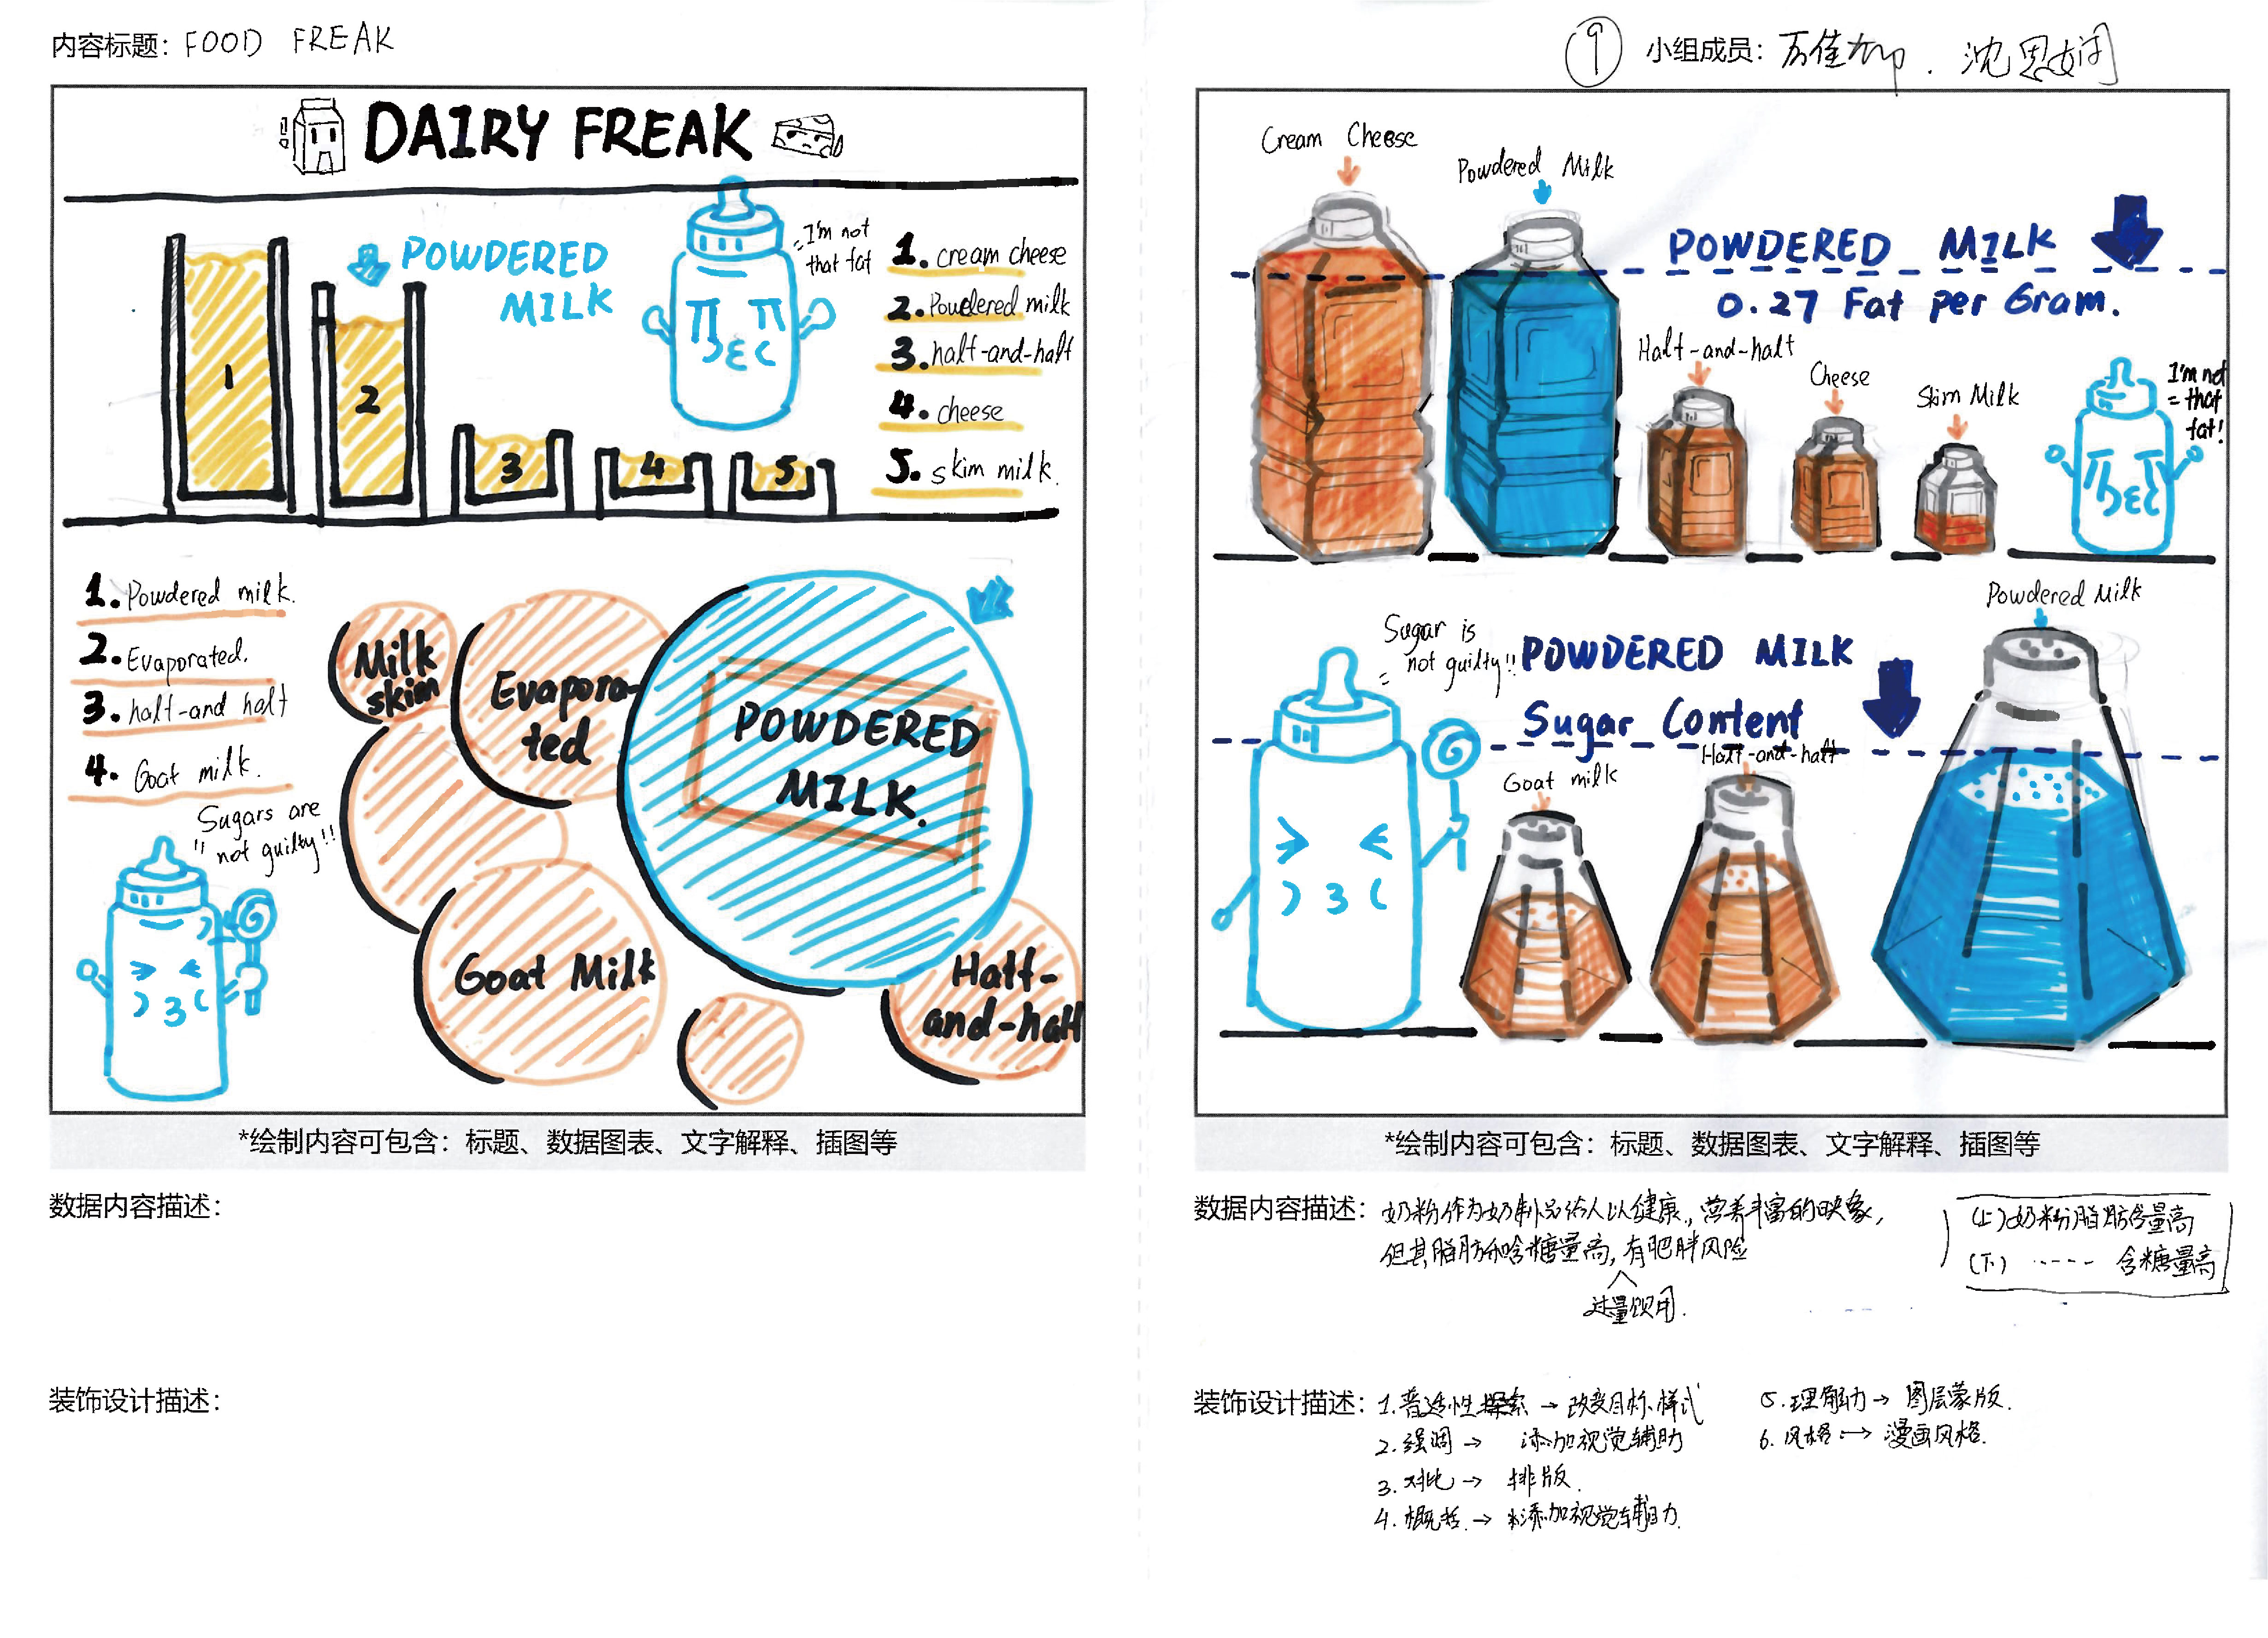 内容标题：FOOD FREAK
DAIRY FREAK
POWDERED
MILK
I'm not
that fat
1. cream cheese
2. Powdered milk
3. half-and-half
4. cheese
5. skim milk.
1
2
3
4
5
1. Powdered milk.
2. Evaporated.
3. half-and half
4. Goat milk.
Sugars are
not guilty!!
Milk
skim
Evapora-
ted
POWDERED
MILK.
Goat Milk
Half-
and-half
*绘制内容可包含：标题、数据图表、文字解释、插图等
数据内容描述：
装饰设计描述：
9
小组成员：
Cream Cheese
Powdered Milk
POWDERED MILK
0.27 Fat per Gram.
Half-and-half
Cheese
Skim Milk
I'm not
that
fat!
Powdered Milk
Sugar is
not guilty!!
POWDERED MILK
Sugar Content
Goat milk
Half-and-half
*绘制内容可包含：标题、数据图表、文字解释、插图等
数据内容描述：奶粉作为奶制品给人以健康、营养丰富的映象，
但其脂肪和含糖量高，有肥胖风险
过量饮用.
(上)奶粉脂肪含量高
(下) ----- 含糖量高
装饰设计描述：1.普适性探索→改变目标样式
2.强调→ 添加视觉辅助
3.对比→ 排版.
4.概括.→ 添加视觉辅助.
5.理解力→ 图层蒙版.
6.风格→ 漫画风格.